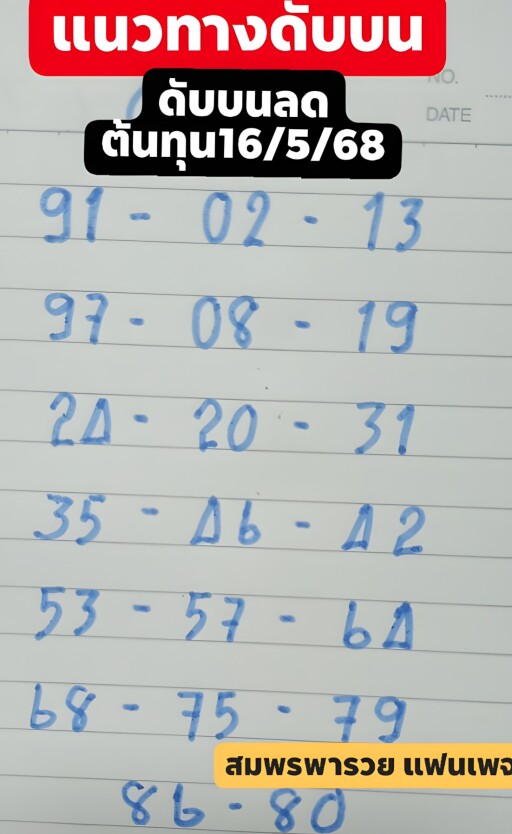 แนวทางดับบน
NO.
ดับบนลด
DATE
ต้นทุน16/5/68
91 - 02 - 13
97 - 08 - 19
24 - 20 - 31
35 - 46 - 42
53 - 57 - 64
68 - 75 - 79
สมพรพารวย แฟนเพจ
86 - 80